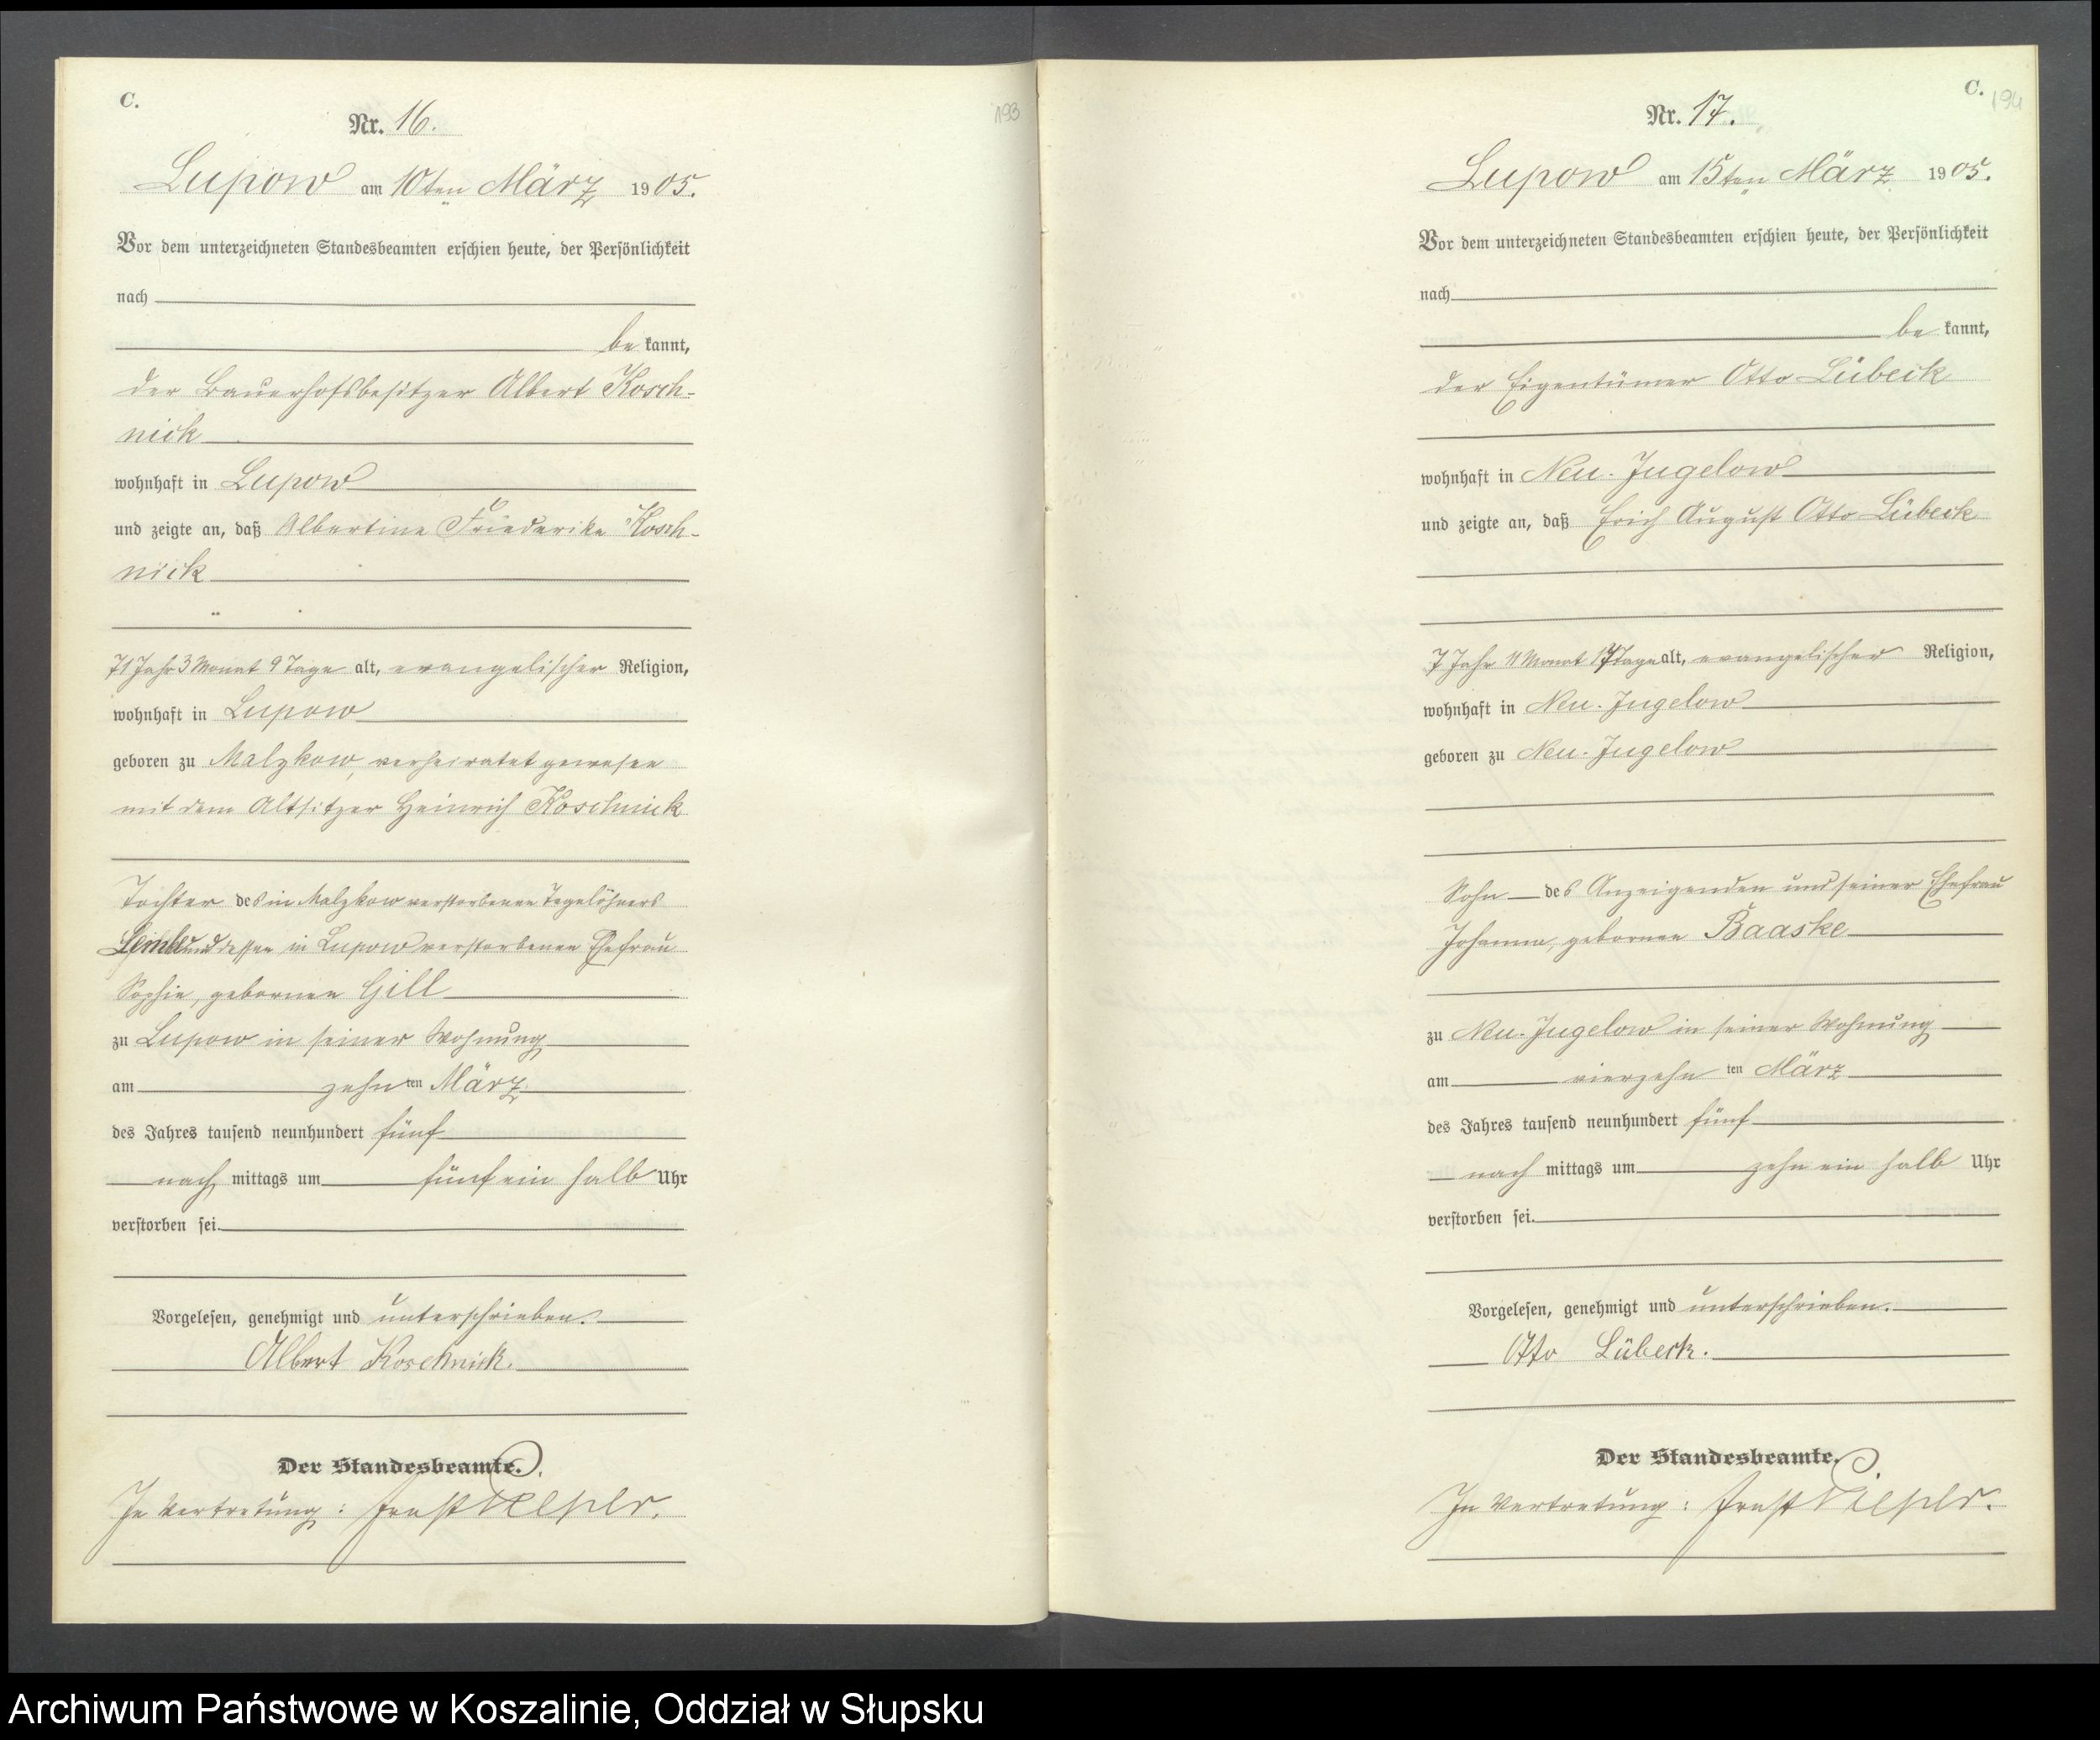 C.
193
Nr. 16.
Lupow am 10ten März 1905.
Vor dem unterzeichneten Standesbeamten erschien heute, der Persönlichkeit
nach
be kannt,
der Bauerhofsbesitzer Albert Kosch-
nick
wohnhaft in Lupow
und zeigte an, daß Albertine Friederike Kosch-
nick
71 Jahr 3 Monat 9 Tage alt, evangelischer Religion,
wohnhaft in Lupow
geboren zu Malzkow, verheiratet gewesen
mit dem Altsitzer Heinrich Koschnick
Tochter des in Malzkow verstorbenen Tagelöhners
und dessen in Lupow verstorbenen Ehefrau
Sophie, geborenen Gill
zu Lupow in seiner Wohnung
am zehn ten März
des Jahres tausend neunhundert fünf
nach mittags um fünf ein halb Uhr
verstorben sei.
Vorgelesen, genehmigt und unterschrieben.
Albert Koschnick.
Der Standesbeamte.
In Vertretung: Ernst Pieper.
C.
194
Nr. 17.
Lupow am 15ten März 1905.
Vor dem unterzeichneten Standesbeamten erschien heute, der Persönlichkeit
nach
be kannt,
der Eigentümer Otto Lübeck
wohnhaft in Neu-Jugelow
und zeigte an, daß Erich August Otto Lübeck
7 Jahr 11 Monat 17 Tage alt, evangelischer Religion,
wohnhaft in Neu-Jugelow
geboren zu Neu-Jugelow
Sohn des Anzeigenden und seiner Ehefrau
Johanna, geborenen Baaske
zu Neu-Jugelow in seiner Wohnung
am vierzehn ten März
des Jahres tausend neunhundert fünf
nach mittags um zehn ein halb Uhr
verstorben sei.
Vorgelesen, genehmigt und unterschrieben.
Otto Lübeck.
Der Standesbeamte.
In Vertretung: Ernst Pieper.
Archiwum Państwowe w Koszalinie, Oddział w Słupsku